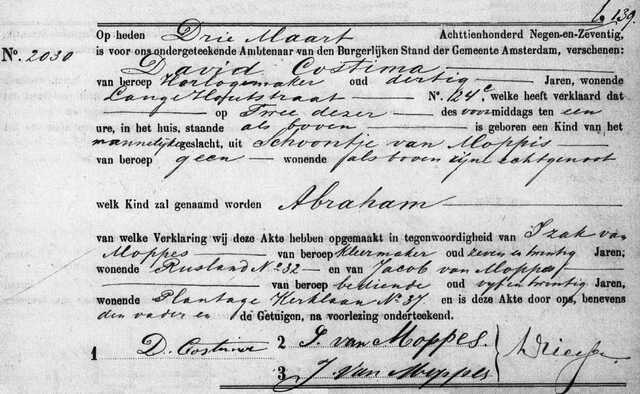 b 139.
Op heden Drie Maart Achttienhonderd Negen-en-Zeventig,
No. 2030 is voor ons ondergeteekende Ambtenaar van den Burgerlijken Stand der Gemeente Amsterdam, verschenen:
David Costima
van beroep Horlogemaker oud dertig Jaren, wonende
Lange Houtstraat No. 124c, welke heeft verklaard dat
op Twee dezer des voormiddags ten een
ure, in het huis, staande als boven is geboren een Kind van het
mannelijk geslacht, uit Schoontje van Moppis
van beroep geen wonende als boven zijne echtgenoot
welk Kind zal genaamd worden Abraham
van welke Verklaring wij deze Akte hebben opgemaakt in tegenwoordigheid van Izak van
Moppes van beroep kleermaker oud zeven en twintig Jaren;
wonende Rusland No. 32 en van Jacob van Moppes
van beroep bediende oud vyf en twintig Jaren,
wonende Plantage Kerklaan No. 37 en is deze Akte door ons, benevens
den vader en de Getuigen, na voorlezing onderteekend.
1 D. Costima 2 I. van Moppes.
3 J. van Moppes